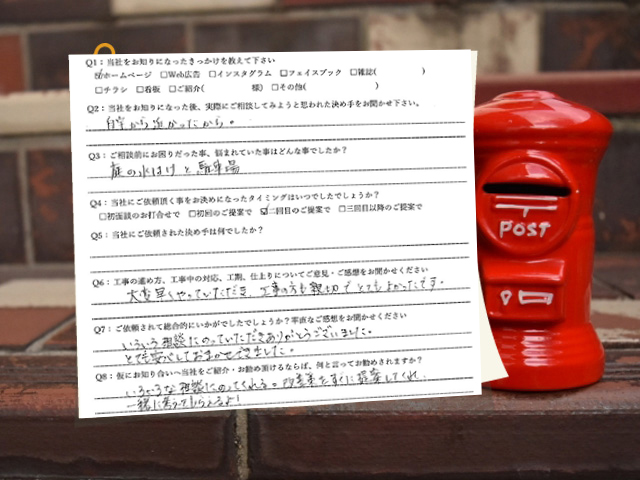 Q1：当社をお知りになったきっかけを教えて下さい
☑ホームページ □Web広告 □インスタグラム □フェイスブック □雑誌( )
□チラシ □看板 □ご紹介( 様) □その他( )
Q2：当社をお知りになった後、実際にご相談してみようと思われた決め手をお聞かせ下さい。
自宅から近かったから。
Q3：ご相談前にお困りだった事、悩まれていた事はどんな事でしたか？
庭の水はけと駐車場
Q4：当社にご依頼頂く事をお決めになったタイミングはいつでしたでしょうか？
□初面談のお打合せで □初回のご提案で ☑二回目のご提案で □三回目以降のご提案で
Q5：当社にご依頼された決め手は何でしたか？
Q6：工事の進め方、工事中の対応、工期、仕上りについてご意見・ご感想をお聞かせください
大変早くやっていただき、工事の方も親切でとてもよかったです。
Q7：ご依頼されて総合的にいかがでしたでしょうか？率直なご感想をお聞かせください
いろいろ相談にのっていただきありがとうございました。
とても安心しておまかせできました。
Q8：仮にお知り合いへ当社をご紹介・お勧め頂けるならば、何と言ってお勧めされますか？
いろいろな相談にのってくれる。改善案をすぐに提案してくれ、
一緒に考えてもらえるよ！
〒
POST